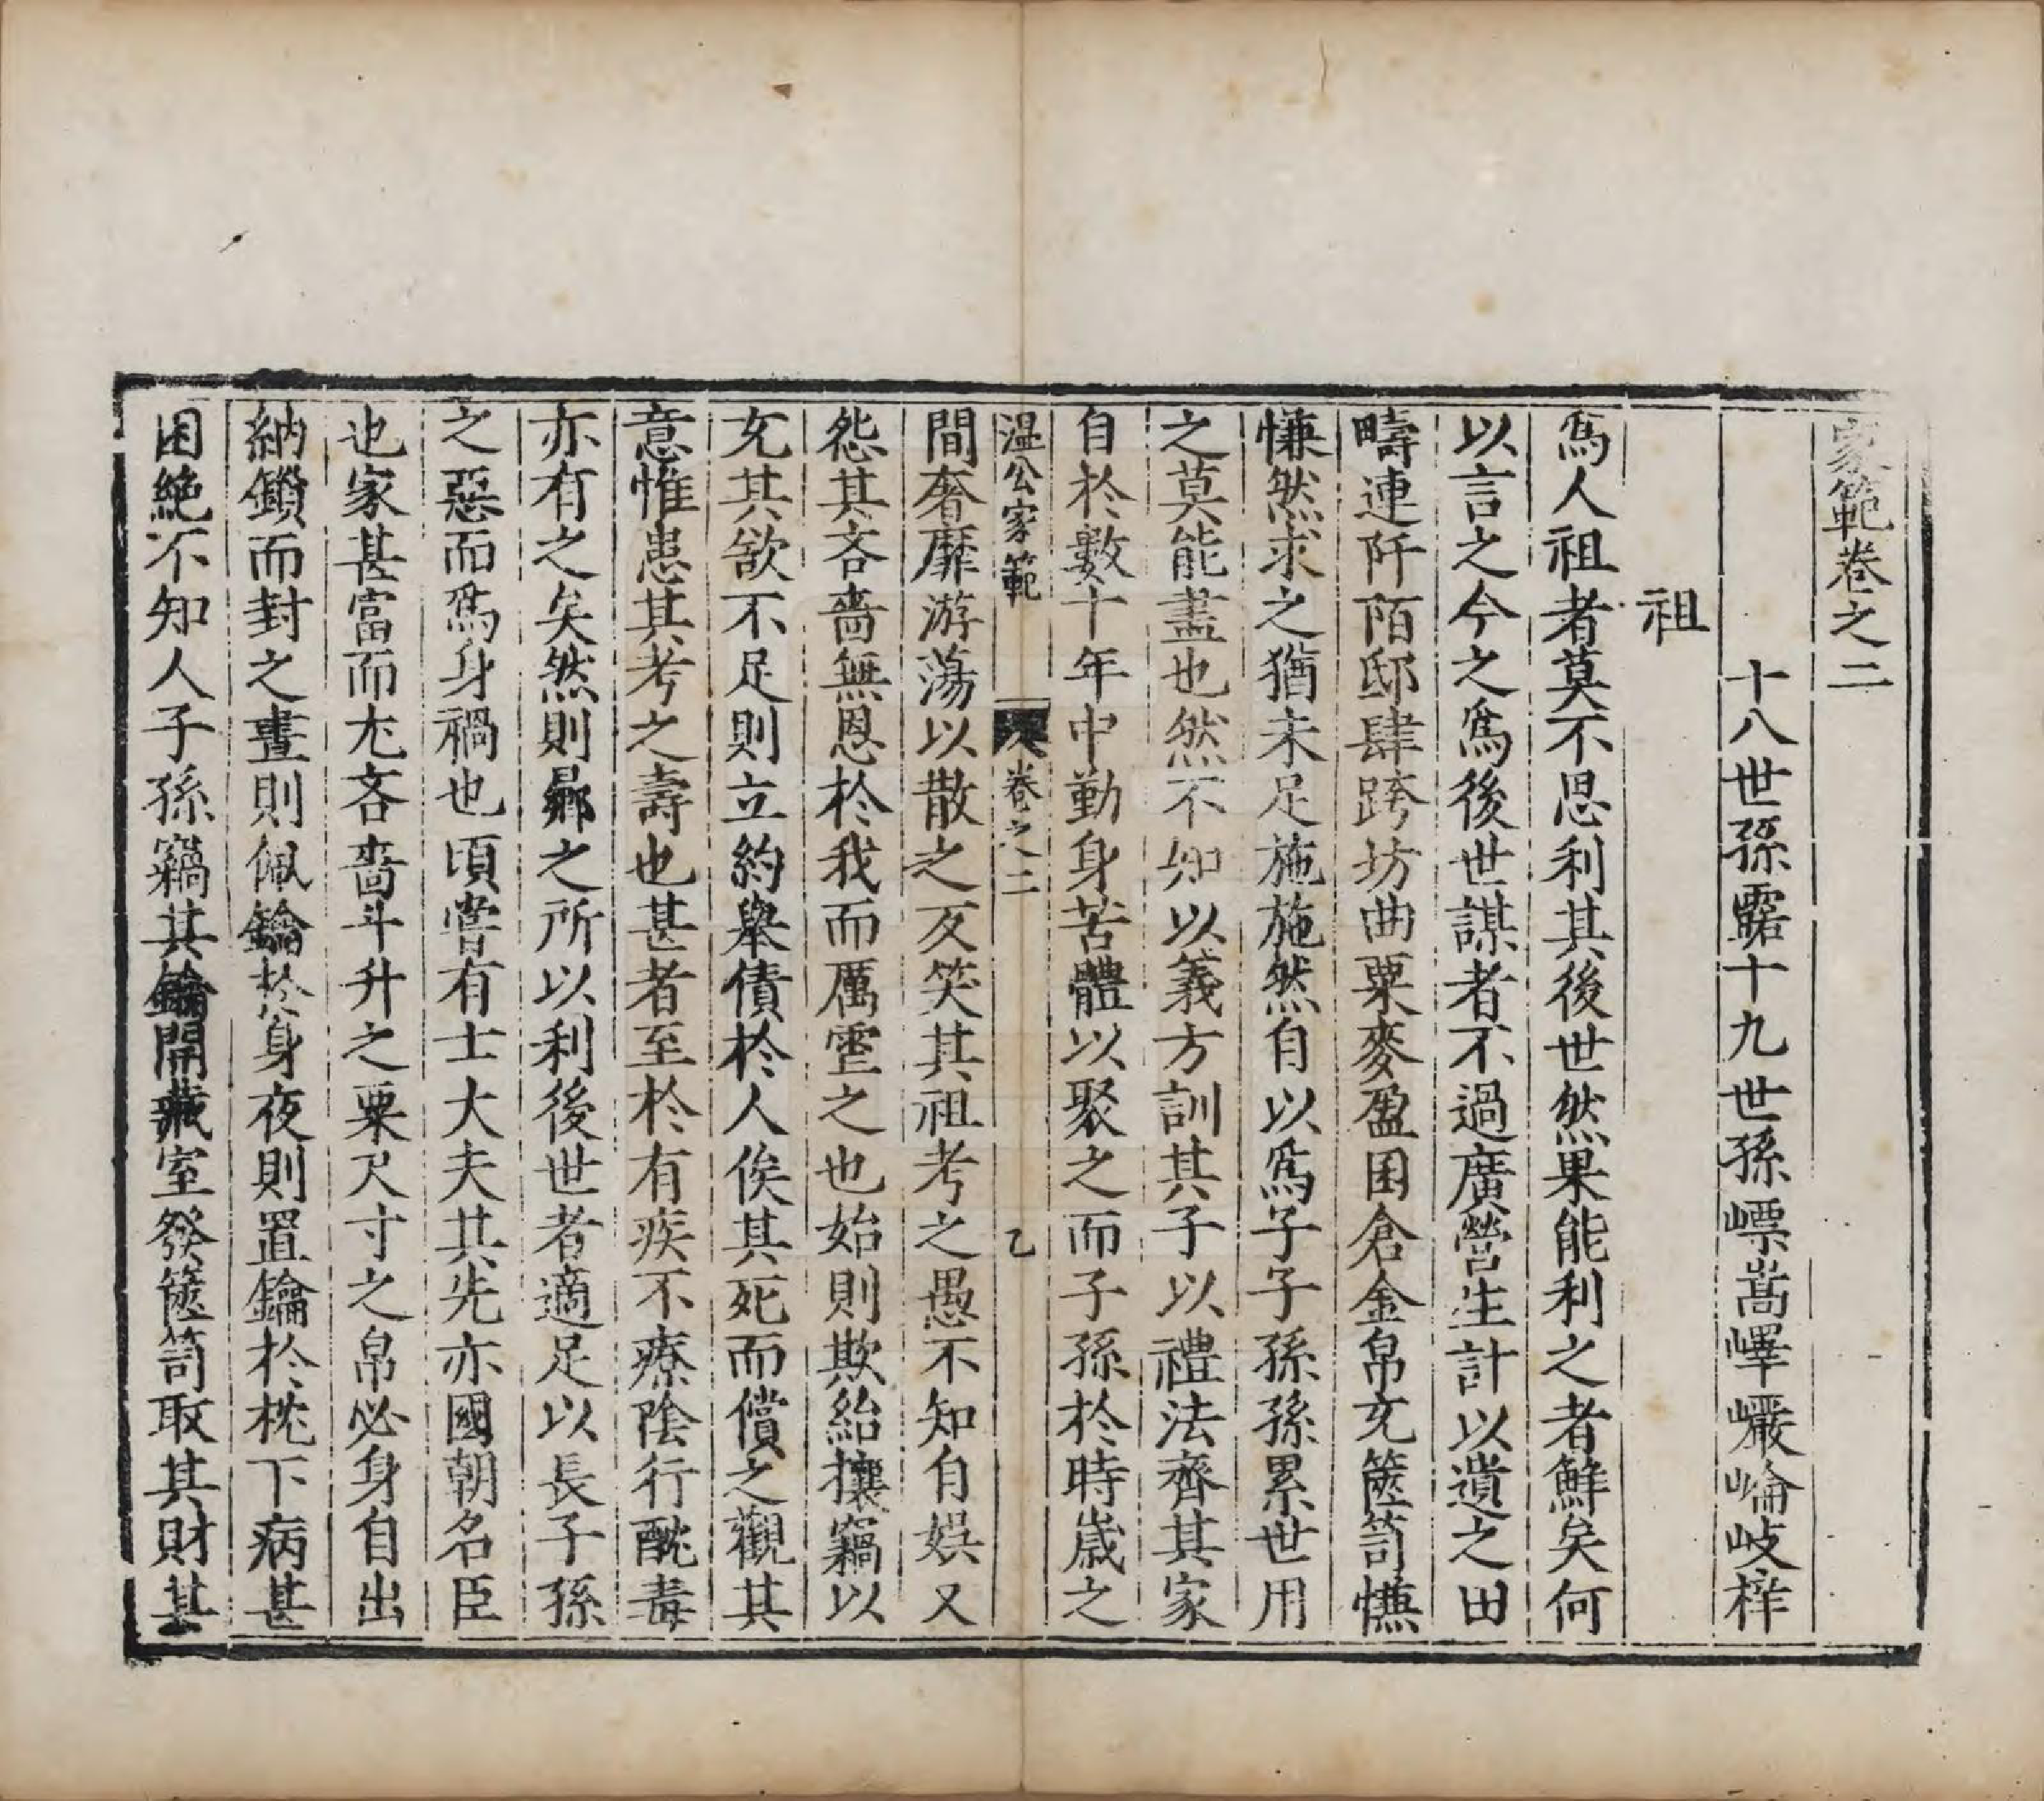 家範卷之二
十八世孫露十九世孫嶫嵩嶧巖崙岐梓
祖
爲人祖者莫不思利其後世然果能利之者鮮矣何
以言之今之爲後世謀者不過廣營生計以遺之田
疇連阡陌邸肆跨坊曲粟麥盈囷倉金帛充篋笥慊
慊然求之猶未足施施然自以爲子子孫孫累世用
之莫能盡也然不知以義方訓其子以禮法齊其家
自於數十年中勤身苦體以聚之而子孫於時歲之
溫公家範 卷之二 乙
間奢靡游蕩以散之反笑其祖考之愚不知自娛又
怨其吝嗇無恩於我而厲虐之也始則欺紿攘竊以
充其欲不足則立約舉債於人俟其死而償之觀其
意惟患其考之壽也甚者至於有疾不療陰行酖毒
亦有之矣然則曏之所以利後世者適足以長子孫
之惡而爲身禍也頃嘗有士大夫其先亦國朝名臣
也家甚富而尤吝嗇斗升之粟尺寸之帛必身自出
納鎖而封之晝則佩鑰於身夜則置鑰於枕下病甚
困絶不知人子孫竊其鑰開藏室發篋笥取其財其